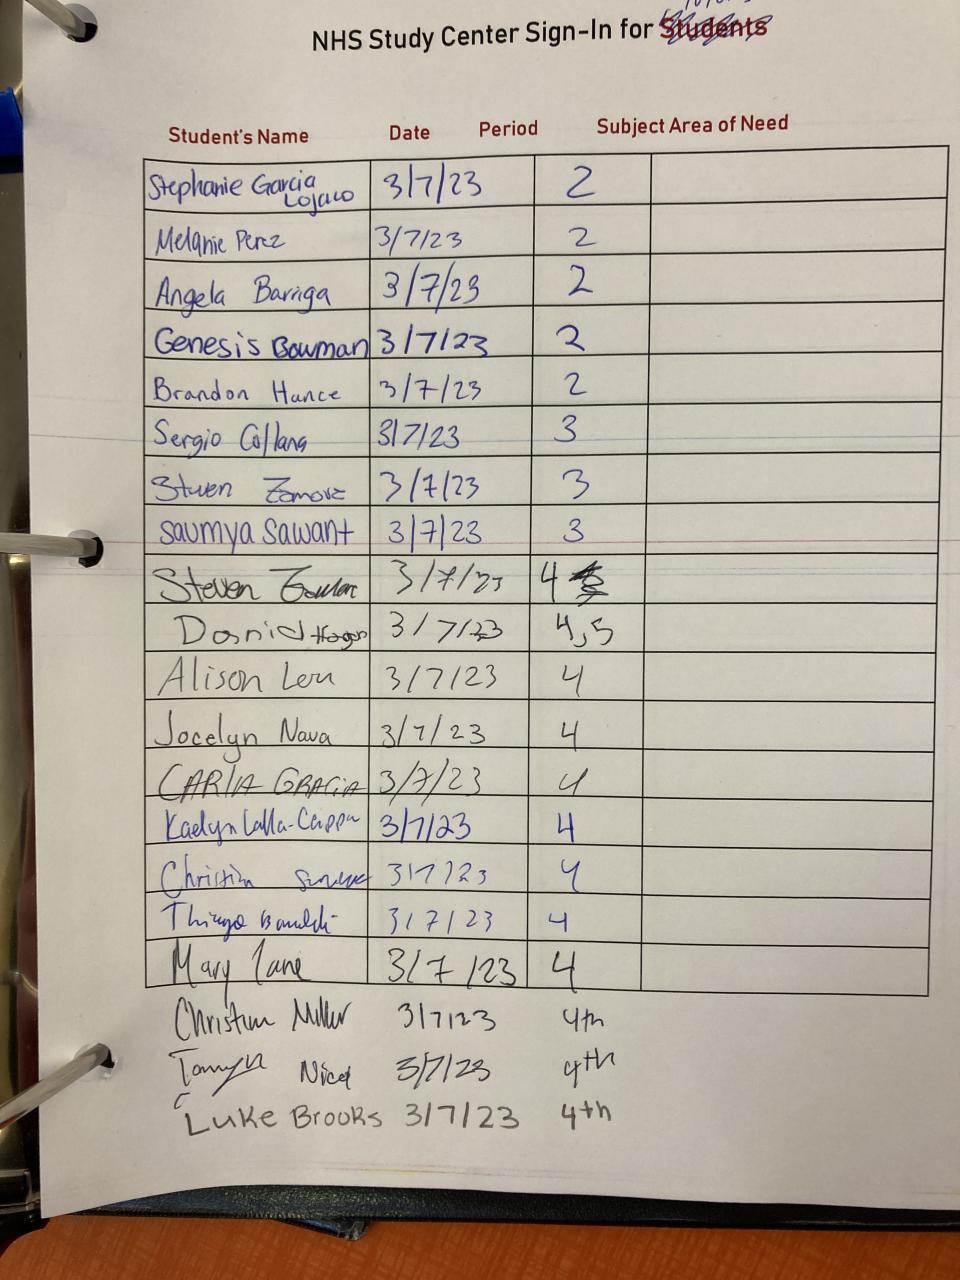 NHS Study Center Sign-In for Students
Student's Name Date Period Subject Area of Need
Stephanie Garcia Lojano 3/7/23 2
Melanie Perez 3/7/23 2
Angela Barriga 3/7/23 2
Genesis Bowman 3/7/23 2
Brandon Hance 3/7/23 2
Sergio Collana 3/7/23 3
3/7/23 3
Saumya Sawant 3/7/23 3
Steven 3/7/23 4
Daniel Hogan 3/7/23 4,5
Alison 3/7/23 4
Jocelyn Nava 3/7/23 4
CARLA GRACIA 3/7/23 4
Kaelyn 3/7/23 4
Christian 3/7/23 4
Thiago 3/7/23 4
Mary Lane 3/7/23 4
Christian Miller 3/7/23 4th
3/7/23 4th
Luke Brooks 3/7/23 4th